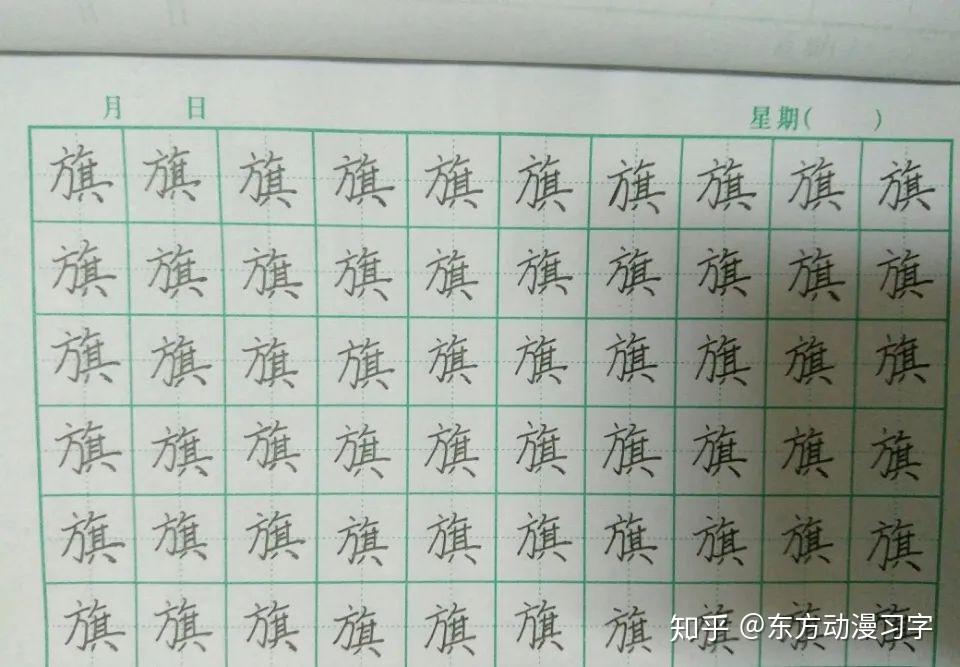 月 日 星期( )
旗 旗 旗 旗 旗 旗 旗 旗 旗 旗
旗 旗 旗 旗 旗 旗 旗 旗 旗 旗
旗 旗 旗 旗 旗 旗 旗 旗 旗 旗
旗 旗 旗 旗 旗 旗 旗 旗 旗 旗
旗 旗 旗 旗 旗 旗 旗 旗 旗 旗
旗 旗 旗 旗 旗 旗 旗 旗 旗 旗
知乎 @东方动漫习字